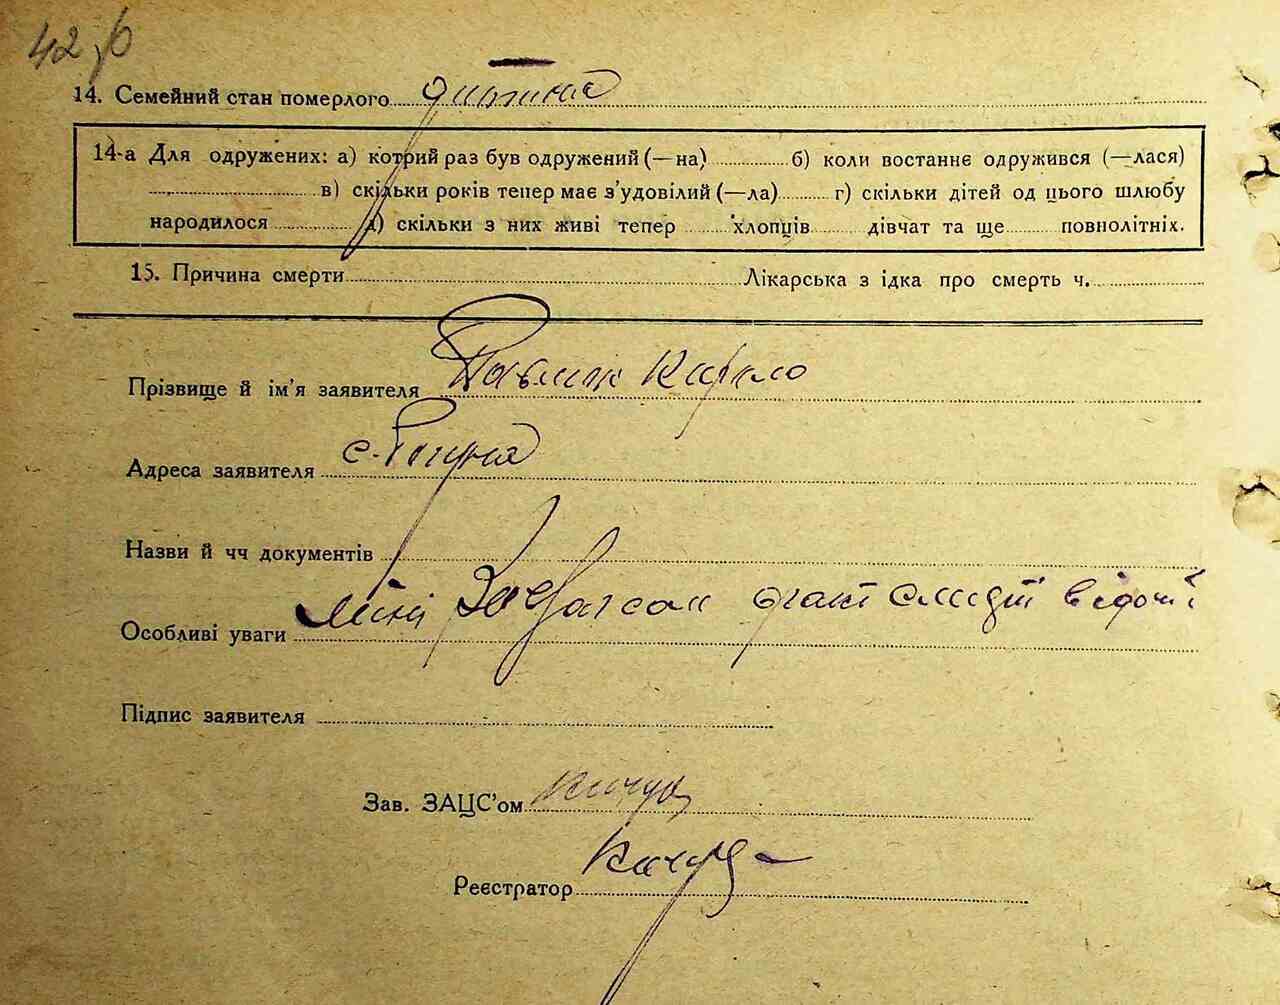 42
14. Семейний стан померлого дитина
14-а Для одружених: а) котрий раз був одружений (—на) б) коли востаннє одружився (—лася)
в) скільки років тепер має з'удовілий (—ла) г) скільки дітей од цього шлюбу
народилося д) скільки з них живі тепер хлопців дівчат та ще повнолітніх.
15. Причина смерти Лікарська з ідка про смерть ч.
Прізвище й ім'я заявителя Павлик Кирило
Адреса заявителя с.
Назви й чч документів
Особливі уваги факт смерті
Підпис заявителя
Зав. ЗАЦС'ом
Реєстратор